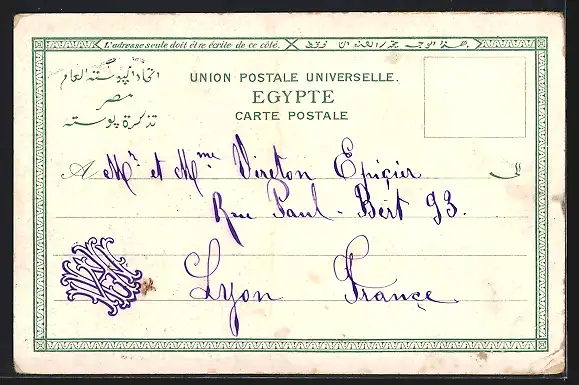 L'adresse seule doit être écrite de ce côté.
UNION POSTALE UNIVERSELLE.
EGYPTE
CARTE POSTALE
اتحاد البوسته العام
مصر
تذكرة بوسته
A Mr. et Mme Vireton Epicier الى
Rue Paul-Bert 93.
Lyon France